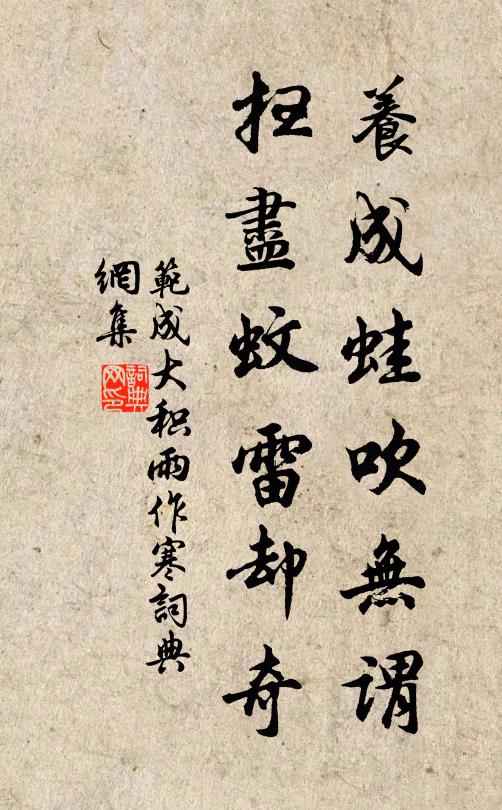 養成蛙吹無謂
扫盡蚊雷却奇
範成大积雨作寒詞典
網集
詞典
网印